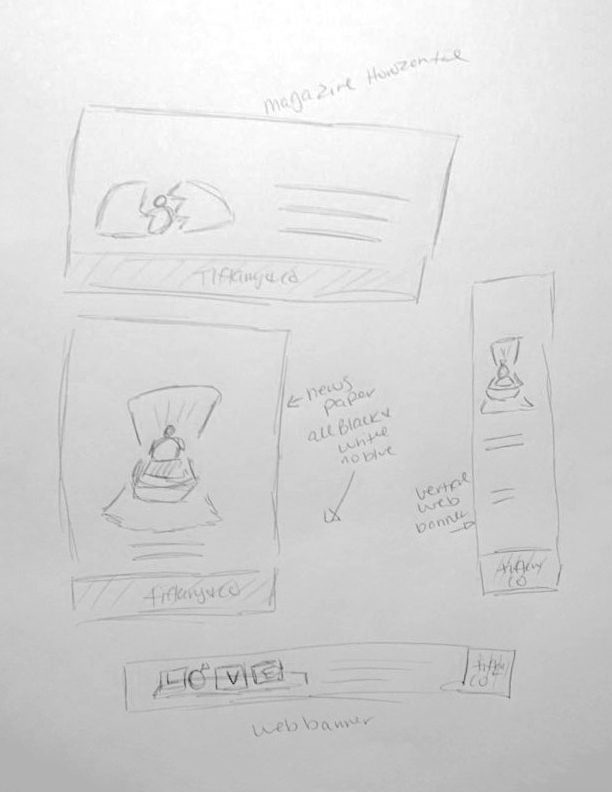 magazine Horizontal
Tiffany & co
← news
paper
all Black &
white
no blue
vertical
web
banner
Tiffany & co
tiffany
co
L O V E
tiffany
co
web banner